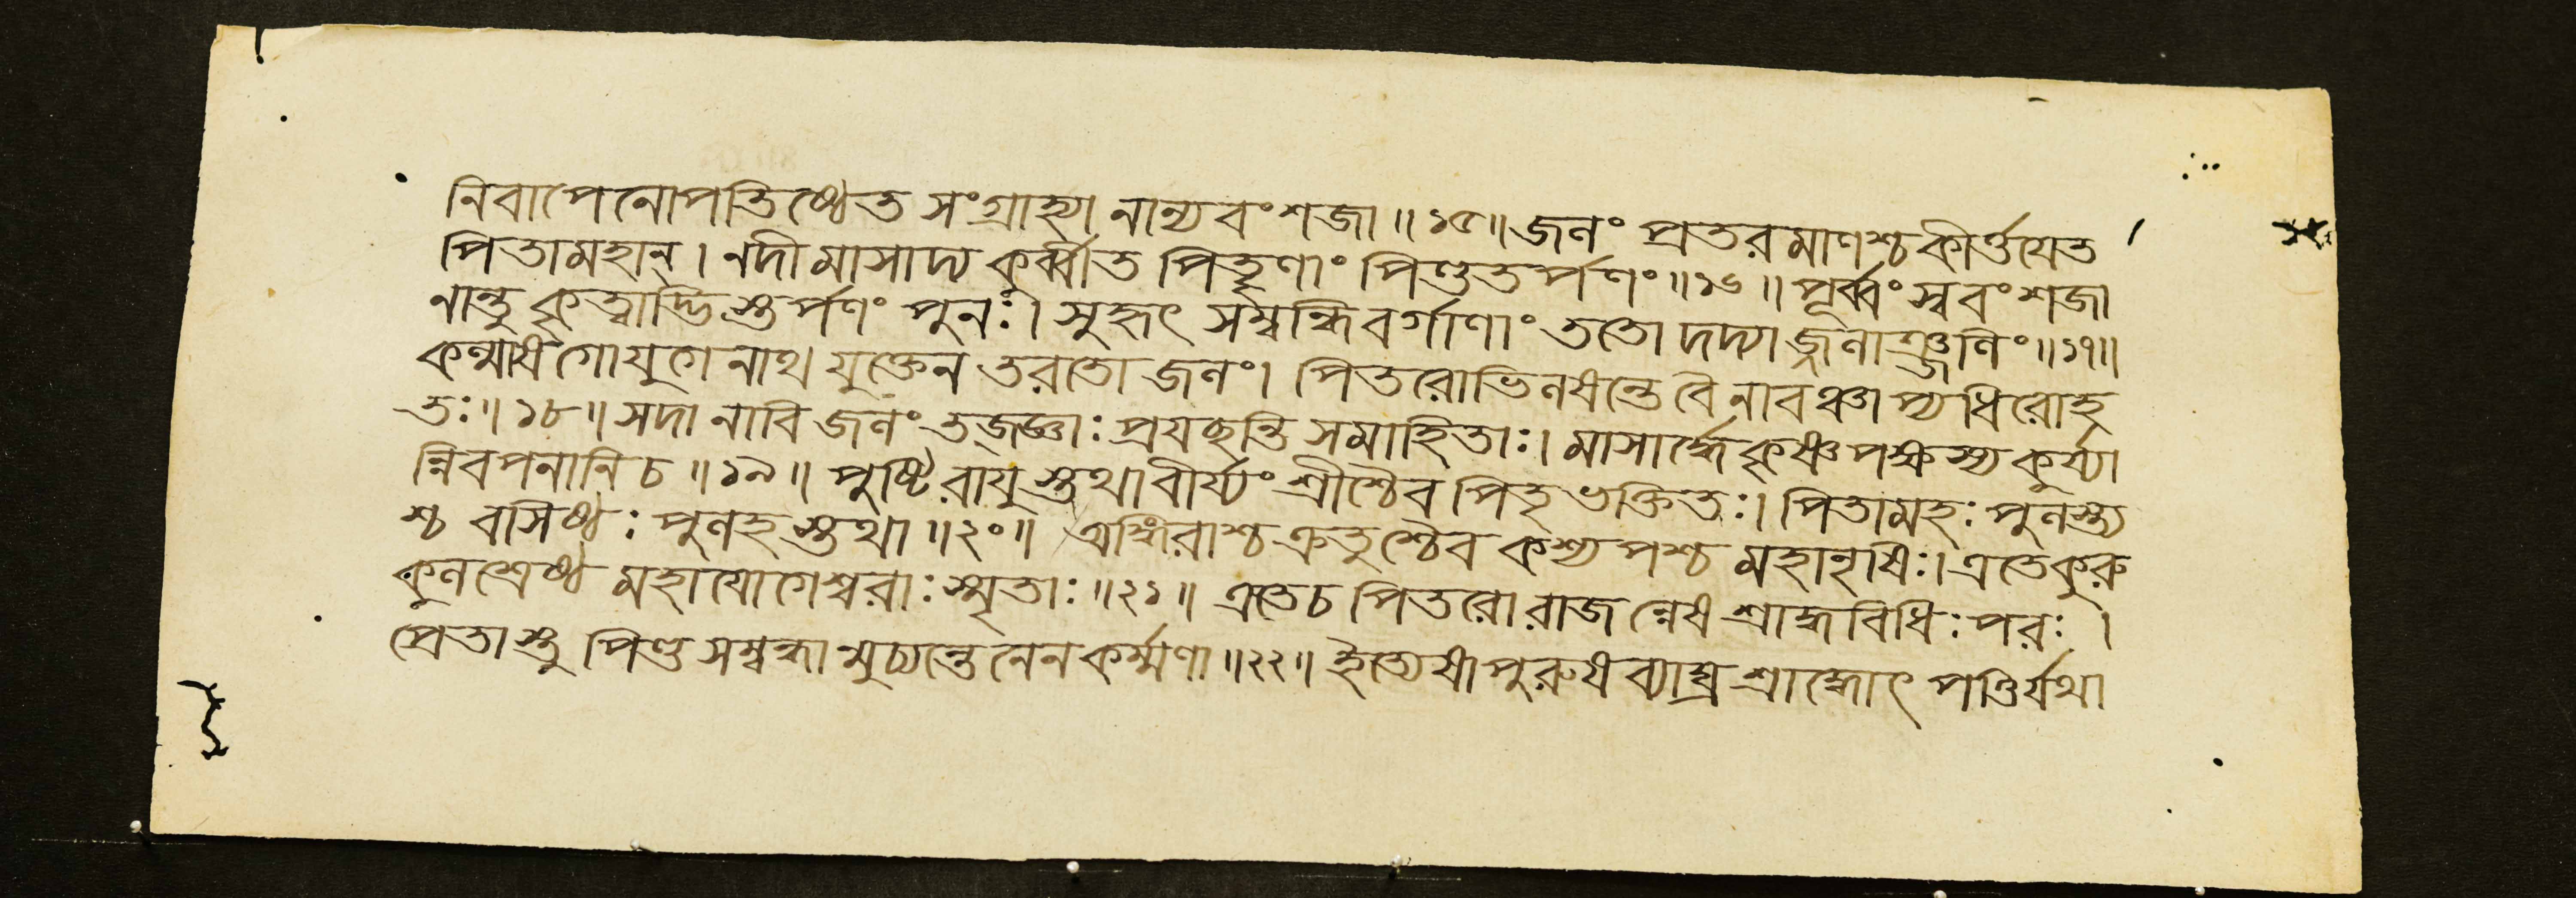 নিবাপেনোপতিষ্ঠেত সংগ্রাহ্যা নান্যবংশজা॥১৫॥জলং প্রতরমাণশ্চ কীর্ত্তয়েত
পিতামহান্। নদীমাসাদ্য কুর্ব্বীত পিতৄণাং পিণ্ডতর্পণং॥১৬॥ পূর্ব্বং স্ববংশজা
নান্তু কৃত্বাদ্ভিস্তর্পণং পুনঃ। সুহৃৎ সম্বন্ধিবর্গাণাং ততো দদ্যাজ্জলাঞ্জলিং॥১৭॥
কল্মাষগোযুগেনাথ যুক্তেন তরতো জলং। পিতরোভিলষন্তে বৈ নাবঞ্চাপ্যধিরোহ
তঃ॥১৮॥ সদা নাবি জলং তজ্জ্ঞাঃ প্রযছন্তি সমাহিতাঃ। মাসার্দ্ধে কৃষ্ণপক্ষস্য কুর্য্যা
ন্নিবপনানি চ॥১৯॥ পুষ্টিরায়ুস্তথা বীর্য্যং শ্রীশ্চৈব পিতৃভক্তিতঃ। পিতামহঃ পুলস্ত্য
শ্চ বসিষ্ঠঃ পুলহস্তথা॥২০॥ অঙ্গিরাশ্চ ক্রতুশ্চৈব কশ্যপশ্চ মহানৃষিঃ। এতে কুরু
কুলশ্রেষ্ঠ মহাযোগেশ্বরাঃ স্মৃতাঃ॥২১॥ এতেচ পিতরো রাজন্নেষ শ্রাদ্ধবিধিঃ পরঃ।
প্রেতাস্তু পিণ্ডসম্বন্ধা মুচ্যন্তে নেন কর্ম্মণা॥২২॥ ইত্যেষা পুরুষব্যাঘ্র শ্রাদ্ধোৎপত্তির্যথা